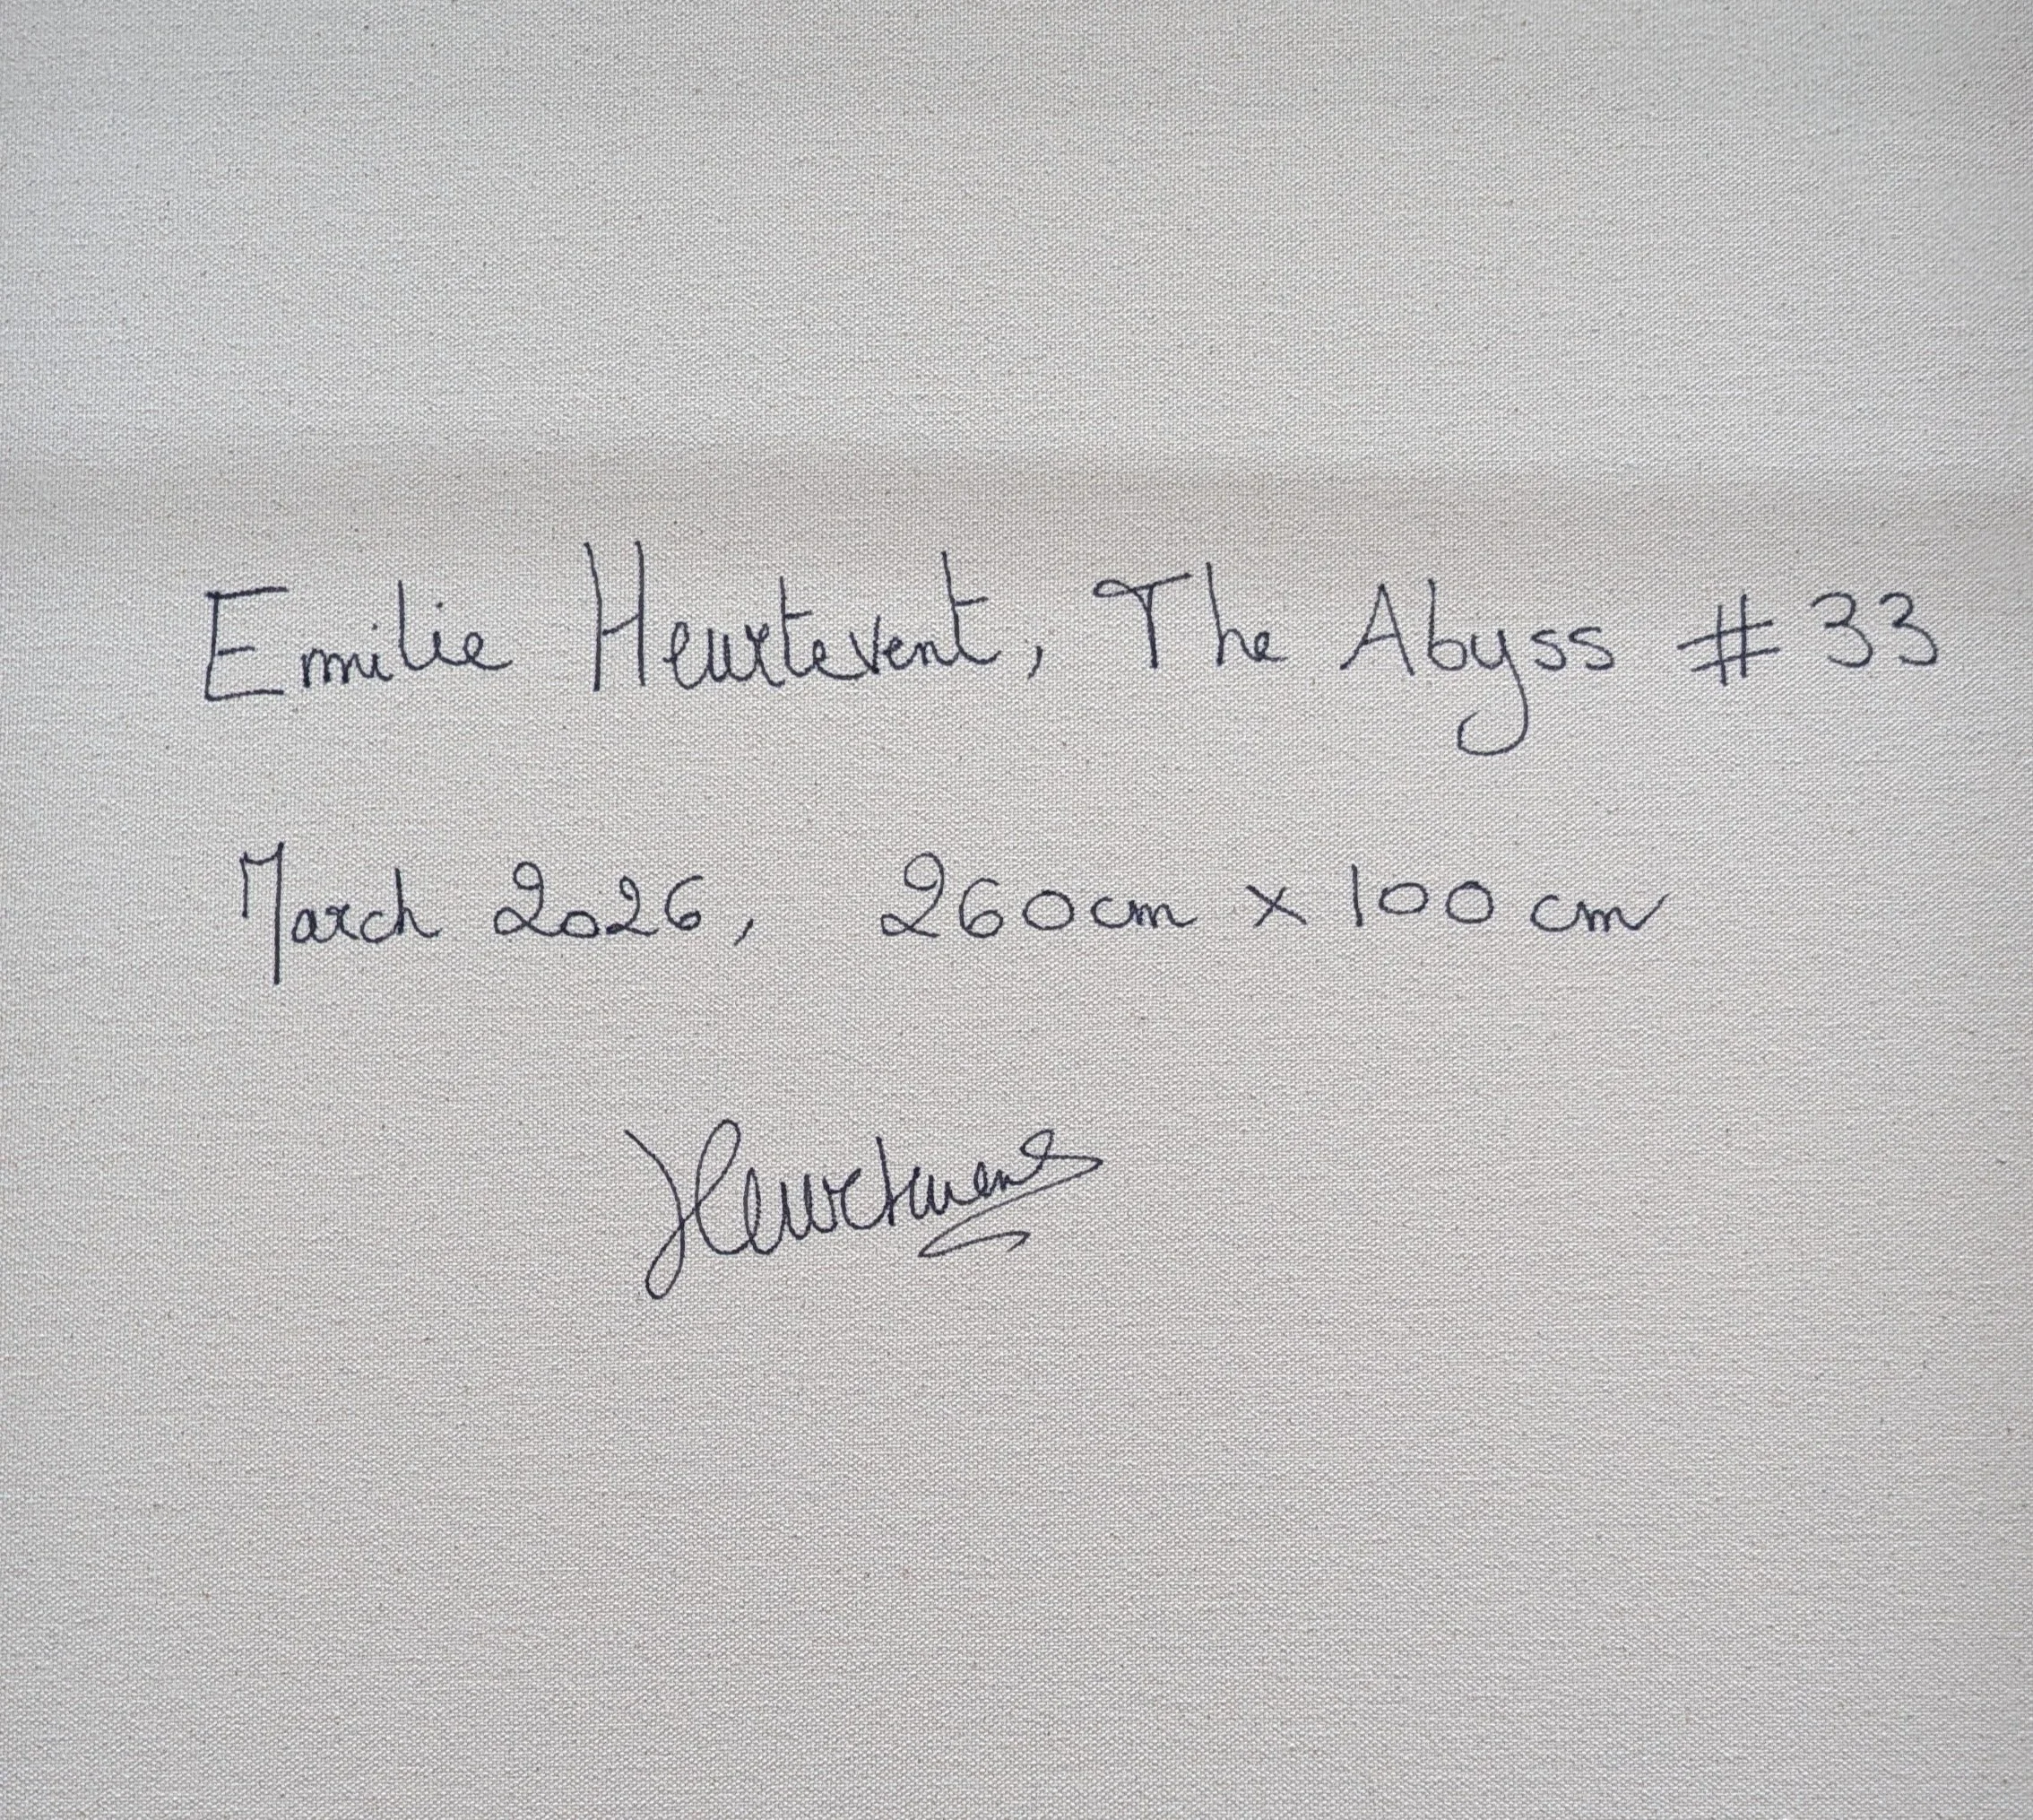 Emilie Heurtevent, The Abyss # 33
March 2026, 260cm x 100 cm
Heurtevent